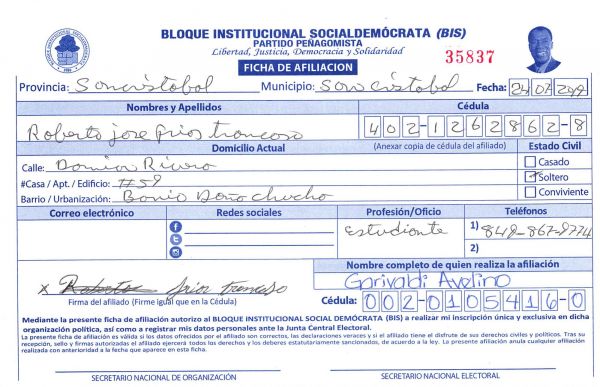 BLOQUE INSTITUCIONAL SOCIALDEMÓCRATA (BIS)
PARTIDO PEÑAGOMISTA
Libertad, Justicia, Democracia y Solidaridad
35837
FICHA DE AFILIACION
Provincia: Sancristobal Municipio: San cristobal Fecha: 24/07/
Nombres y Apellidos Cédula
Roberto jose frias troncoso 402-1262862-8
Domicilio Actual (Anexar copia de cédula del afiliado) Estado Civil
Calle: Rivero Casado
#Casa / Apt. / Edificio: #59 Soltero
Barrio / Urbanización: Barrio Doña chucho Conviviente
Correo electrónico Redes sociales Profesión/Oficio Teléfonos
estudiante 1) 849-867-9774
2)
Nombre completo de quien realiza la afiliación
x Roberto frias troncoso Garivaldi Avelino
Firma del afiliado (Firme igual que en la Cédula) Cédula: 002-0105416-0
Mediante la presente ficha de afiliación autorizo al BLOQUE INSTITUCIONAL SOCIAL DEMÓCRATA (BIS) a realizar mi inscripción única y exclusiva en dicha
organización política, así como a registrar mis datos personales ante la Junta Central Electoral.
La presente ficha de afiliación es válida si los datos ofrecidos por el afiliado son correctos, las declaraciones veraces y si el afiliado tiene el disfrute de sus derechos civiles y políticos. Tras su
recepción, sello y firmas autorizadas el afiliado ejercerá todos los derechos y los deberes estatutariamente sancionados, de acuerdo a la ley. La presente afiliación anula cualquier afiliación
realizada con anterioridad a la fecha que aparece en esta ficha.
SECRETARIO NACIONAL DE ORGANIZACIÓN SECRETARIO NACIONAL ELECTORAL